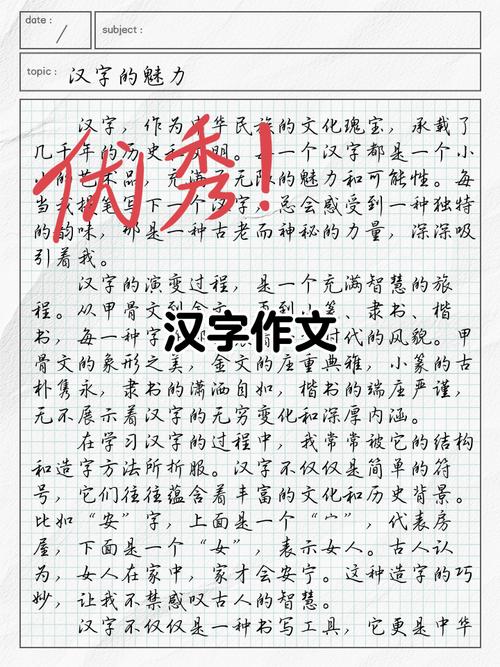 date :
subject :
topic :
汉字的魅力
汉字，作为中华民族的文化瑰宝，承载了
几千年的历史和文明。每一个汉字都是一个小
小的艺术品，充满了无限的魅力和可能性。每
当我提笔写下一个汉字，总会感受到一种独特
的韵味，那是一种古老而神秘的力量，深深吸
引着我。
优秀！
汉字的演变过程，是一个充满智慧的旅
程。从甲骨文到金文，再到小篆、隶书、楷
书，每一种字 时代的风貌。甲
汉字作文
骨文的象形之美，金文的庄重典雅，小篆的古
朴隽永，隶书的潇洒自如，楷书的端庄严谨，
无不展示着汉字的无穷变化和深厚内涵。
在学习汉字的过程中，我常常被它的结构
和造字方法所折服。汉字不仅仅是简单的符
号，它们往往蕴含着丰富的文化和历史背景。
比如“安”字，上面是一个“宀”，代表房
屋，下面是一个“女”，表示女人。古人认
为，女人在家中，家才会安宁。这种造字的巧
妙，让我不禁感叹古人的智慧。
汉字不仅仅是一种书写工具，它更是中华